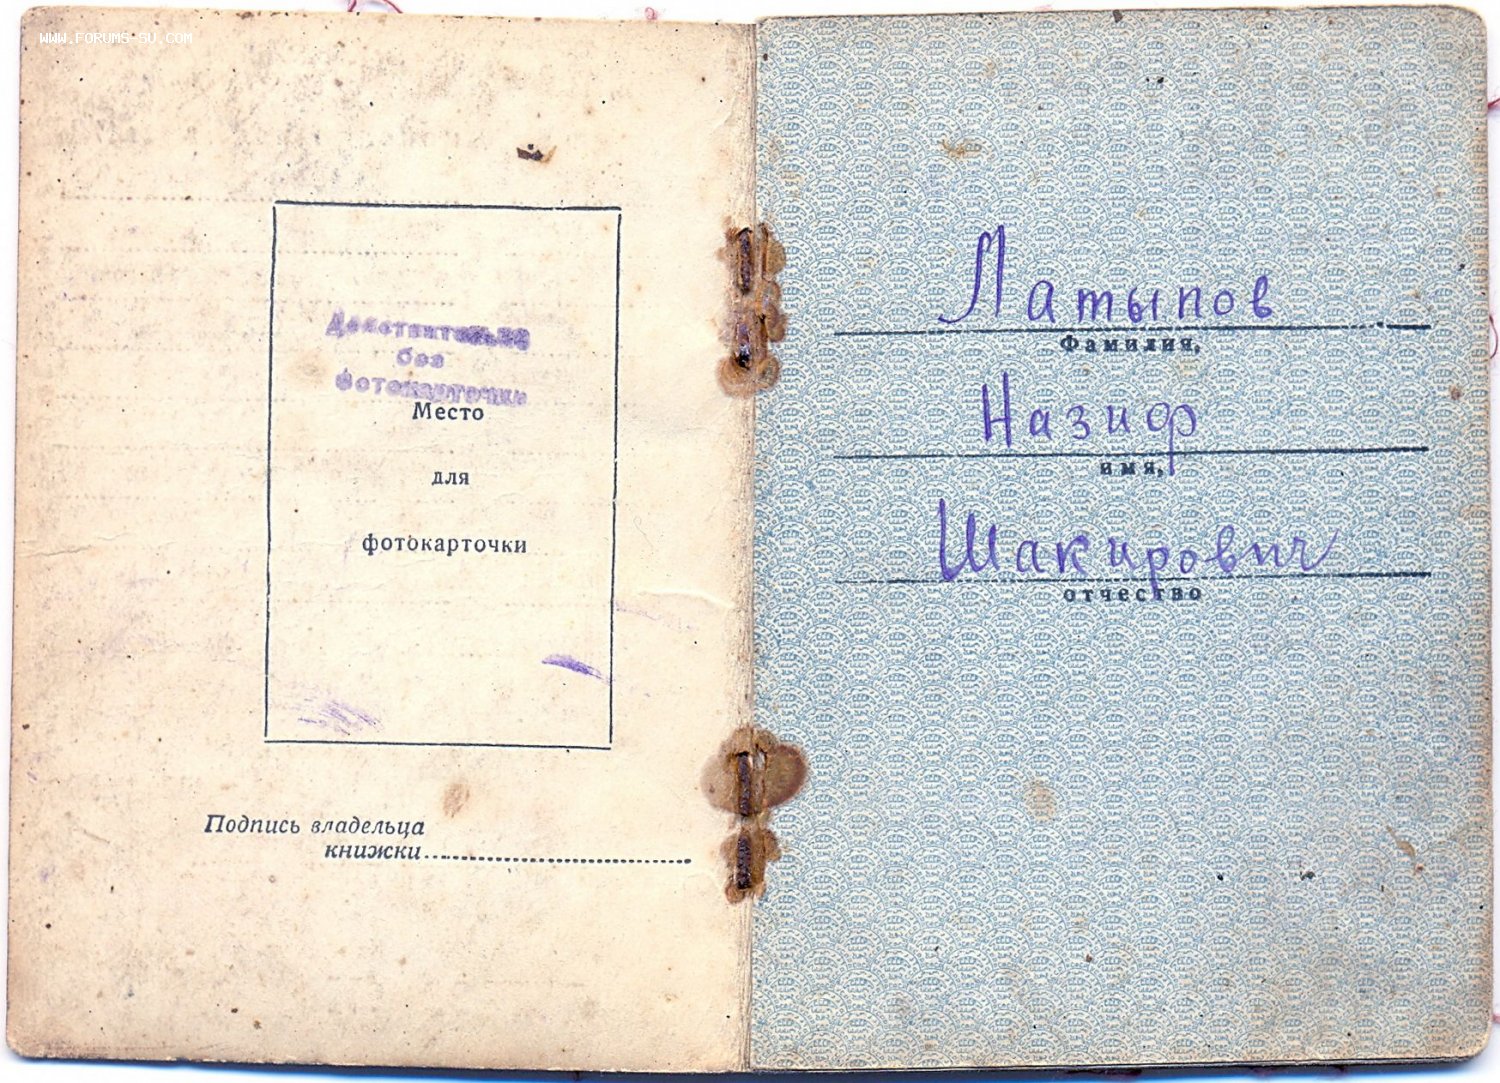 WWW.FORUMS-SU.COM
Действительна
без
фотокарточки
Место
для
фотокарточки
Подпись владельца
книжки
Латыпов
Фамилия,
Назиф
имя,
Шакирович
отчество